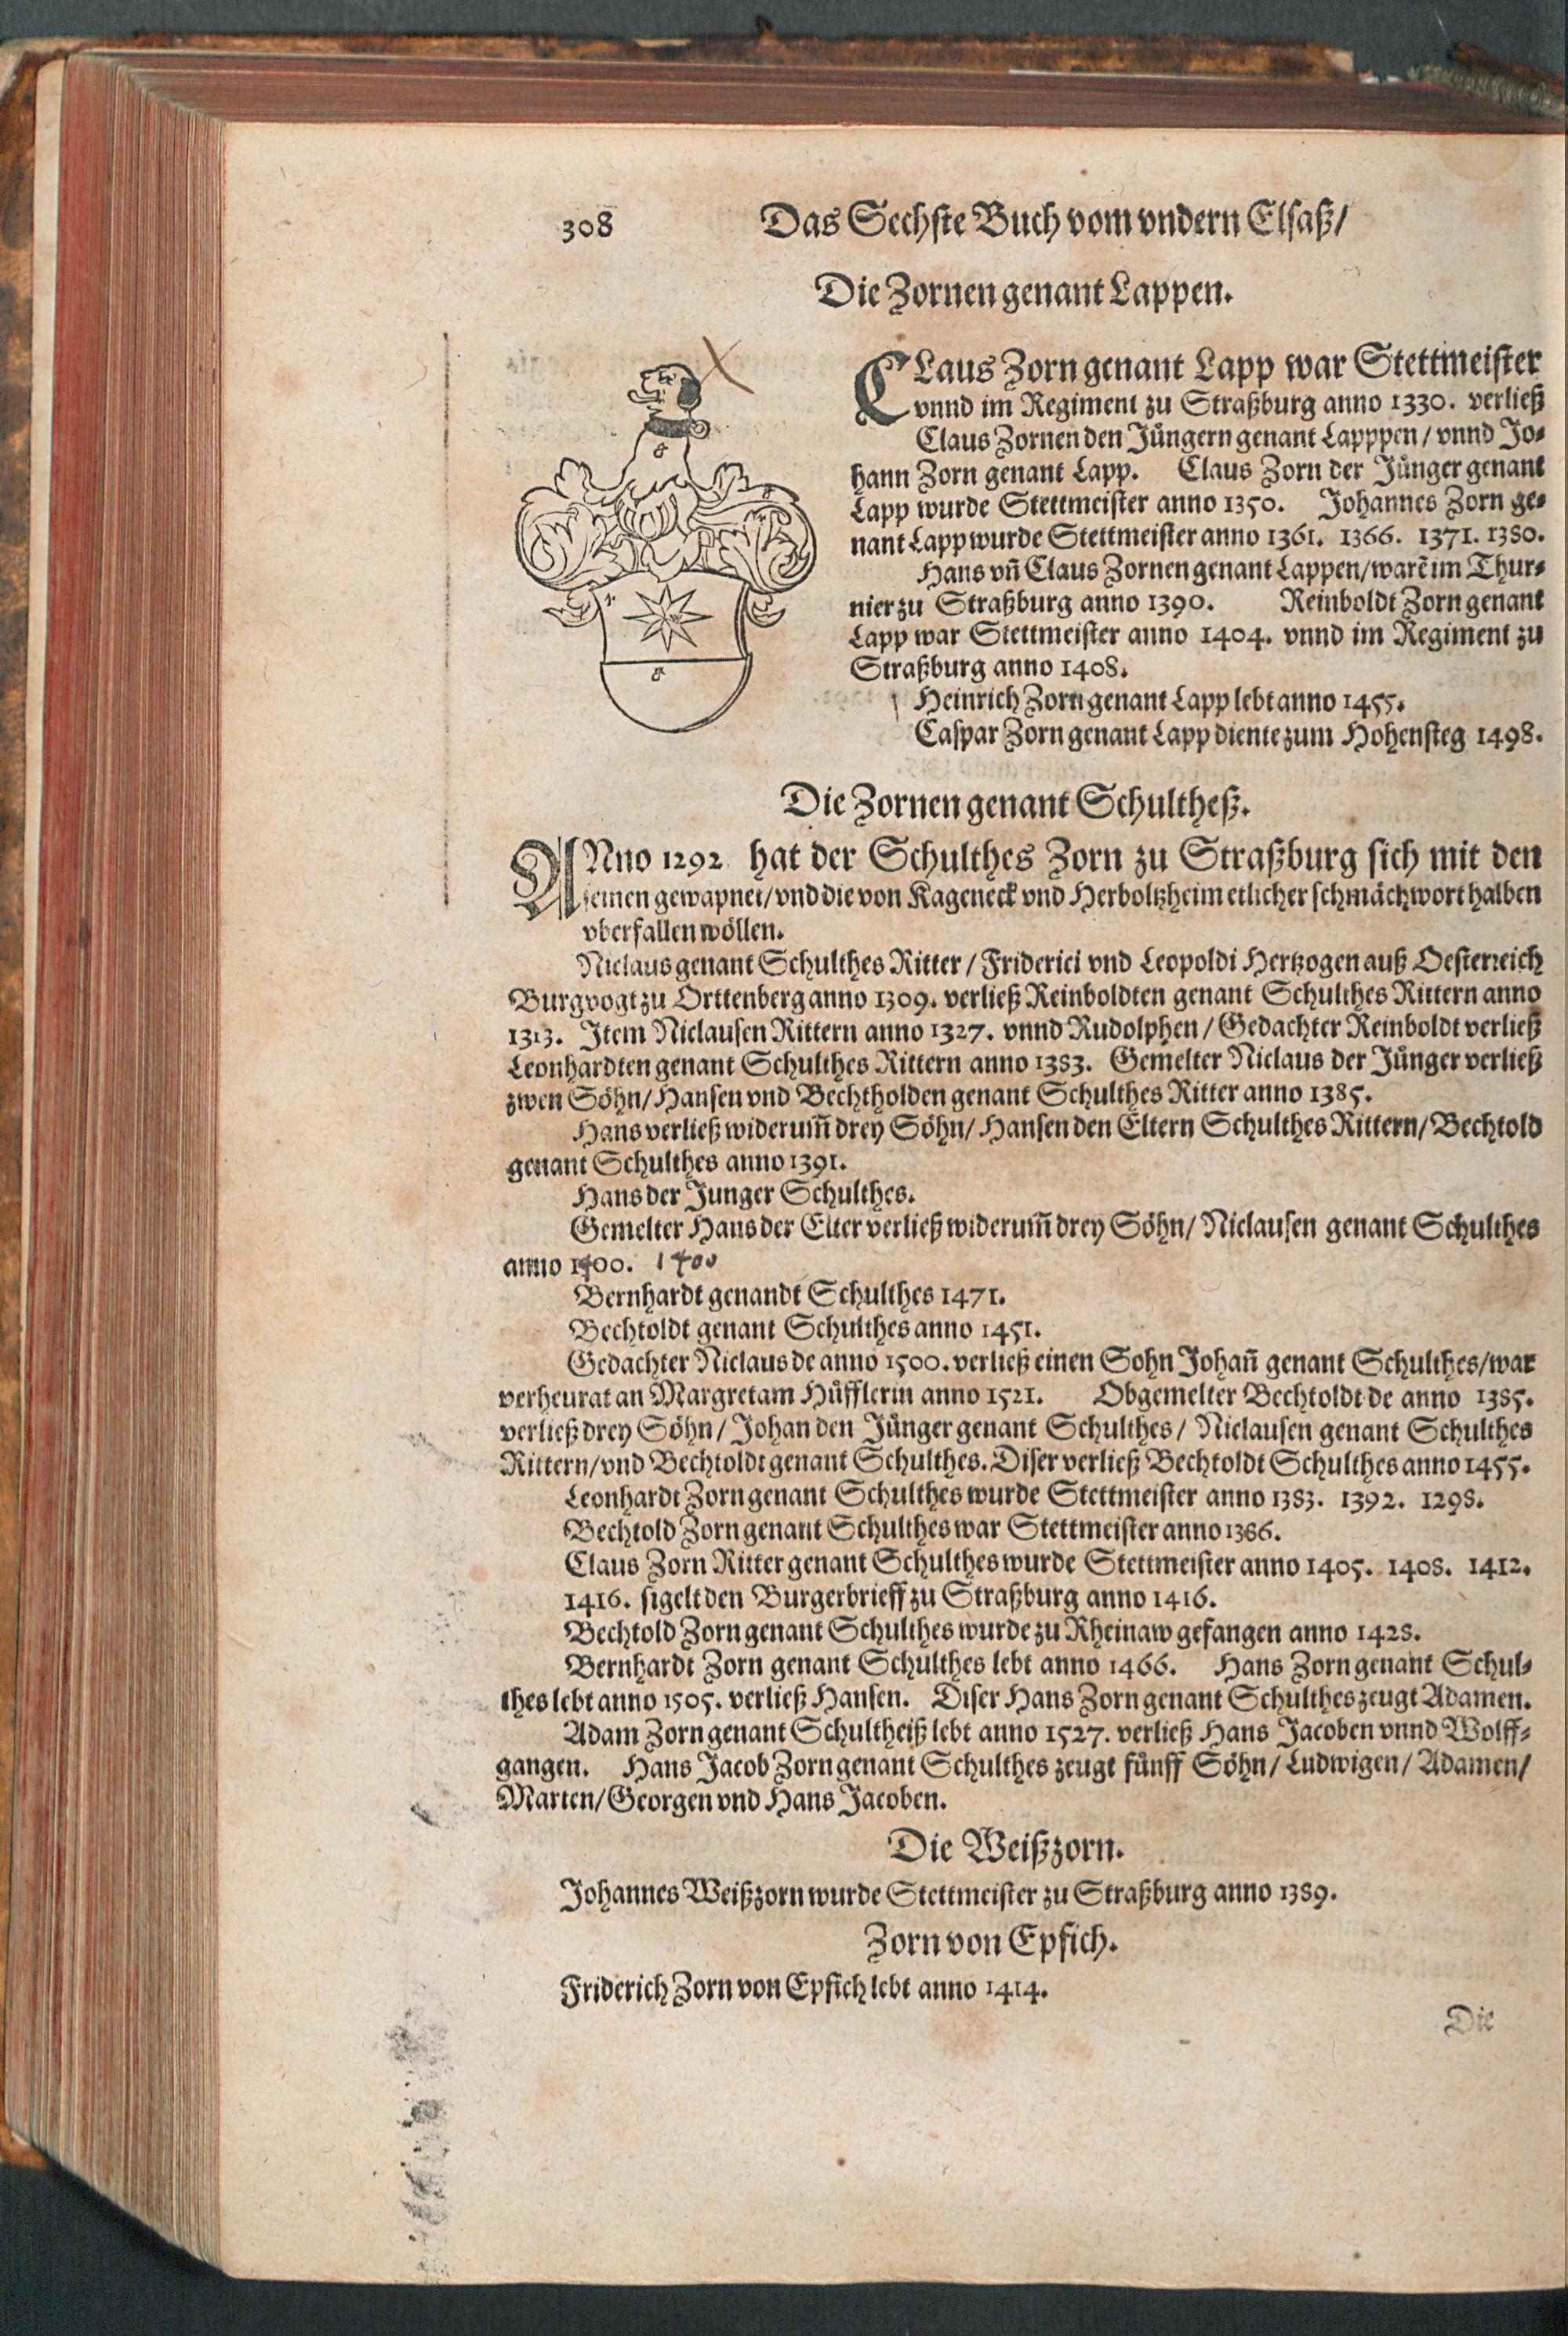 308 Das Sechste Buch vom vndern Elsaß/
Die Zornen genant Lappen.
CLaus Zorn genant Lapp war Stettmeister
vnnd im Regiment zu Straßburg anno 1330. verließ
Claus Zornen den Jüngern genant Lapppen / vnnd Jo-
hann Zorn genant Lapp. Claus Zorn der Jünger genant
Lapp wurde Stettmeister anno 1350. Johannes Zorn ge-
nant Lapp wurde Stettmeister anno 1361. 1366. 1371. 1380.
Hans vñ Claus Zornen genant Lappen/warẽ im Thur-
nier zu Straßburg anno 1390. Reinboldt Zorn genant
Lapp war Stettmeister anno 1404. vnnd im Regiment zu
Straßburg anno 1408.
Heinrich Zorn genant Lapp lebt anno 1455.
Caspar Zorn genant Lapp diente zum Hohensteg 1498.
Die Zornen genant Schultheß.
ANno 1292 hat der Schulthes Zorn zu Straßburg sich mit den
seinen gewapnet/vnd die von Kageneck vnd Herboltzheim etlicher schmächwort halben
vberfallen wöllen.
Niclaus genant Schulthes Ritter / Friderici vnd Leopoldi Hertzogen auß Oesterreich
Burgvogt zu Orttenberg anno 1309. verließ Reinboldten genant Schulthes Rittern anno
1313. Item Niclausen Rittern anno 1327. vnnd Rudolphen / Gedachter Reinboldt verließ
Leonhardten genant Schulthes Rittern anno 1383. Gemelter Niclaus der Jünger verließ
zwen Söhn/ Hansen vnd Bechtholden genant Schulthes Ritter anno 1385.
Hans verließ widerum̃ drey Söhn/ Hansen den Eltern Schulthes Rittern/ Bechtold
genant Schulthes anno 1391.
Hans der Junger Schulthes.
Gemelter Hans der Elter verließ widerum̃ drey Söhn/ Niclausen genant Schulthes
anno 1400. 1400
Bernhardt genandt Schulthes 1471.
Bechtoldt genant Schulthes anno 1451.
Gedachter Niclaus de anno 1500. verließ einen Sohn Johañ genant Schulthes/war
verheurat an Margretam Hüfflerin anno 1521. Obgemelter Bechtoldt de anno 1385.
verließ drey Söhn/ Johan den Jünger genant Schulthes / Niclausen genant Schulthes
Rittern/vnd Bechtoldt genant Schulthes. Diser verließ Bechtoldt Schulthes anno 1455.
Leonhardt Zorn genant Schulthes wurde Stettmeister anno 1383. 1392. 1298.
Bechtold Zorn genant Schulthes war Stettmeister anno 1386.
Claus Zorn Ritter genant Schulthes wurde Stettmeister anno 1405. 1408. 1412.
1416. sigelt den Burgerbrieff zu Straßburg anno 1416.
Bechtold Zorn genant Schulthes wurde zu Rheinaw gefangen anno 1428.
Bernhardt Zorn genant Schulthes lebt anno 1466. Hans Zorn genant Schul-
thes lebt anno 1505. verließ Hansen. Diser Hans Zorn genant Schulthes zeugt Adamen.
Adam Zorn genant Schultheiß lebt anno 1527. verließ Hans Jacoben vnnd Wolff-
gangen. Hans Jacob Zorn genant Schulthes zeugt fünff Söhn/ Ludwigen/ Adamen/
Marten/ Georgen vnd Hans Jacoben.
Die Weißzorn.
Johannes Weißzorn wurde Stettmeister zu Straßburg anno 1389.
Zorn von Epfich.
Friderich Zorn von Epfich lebt anno 1414.
Die